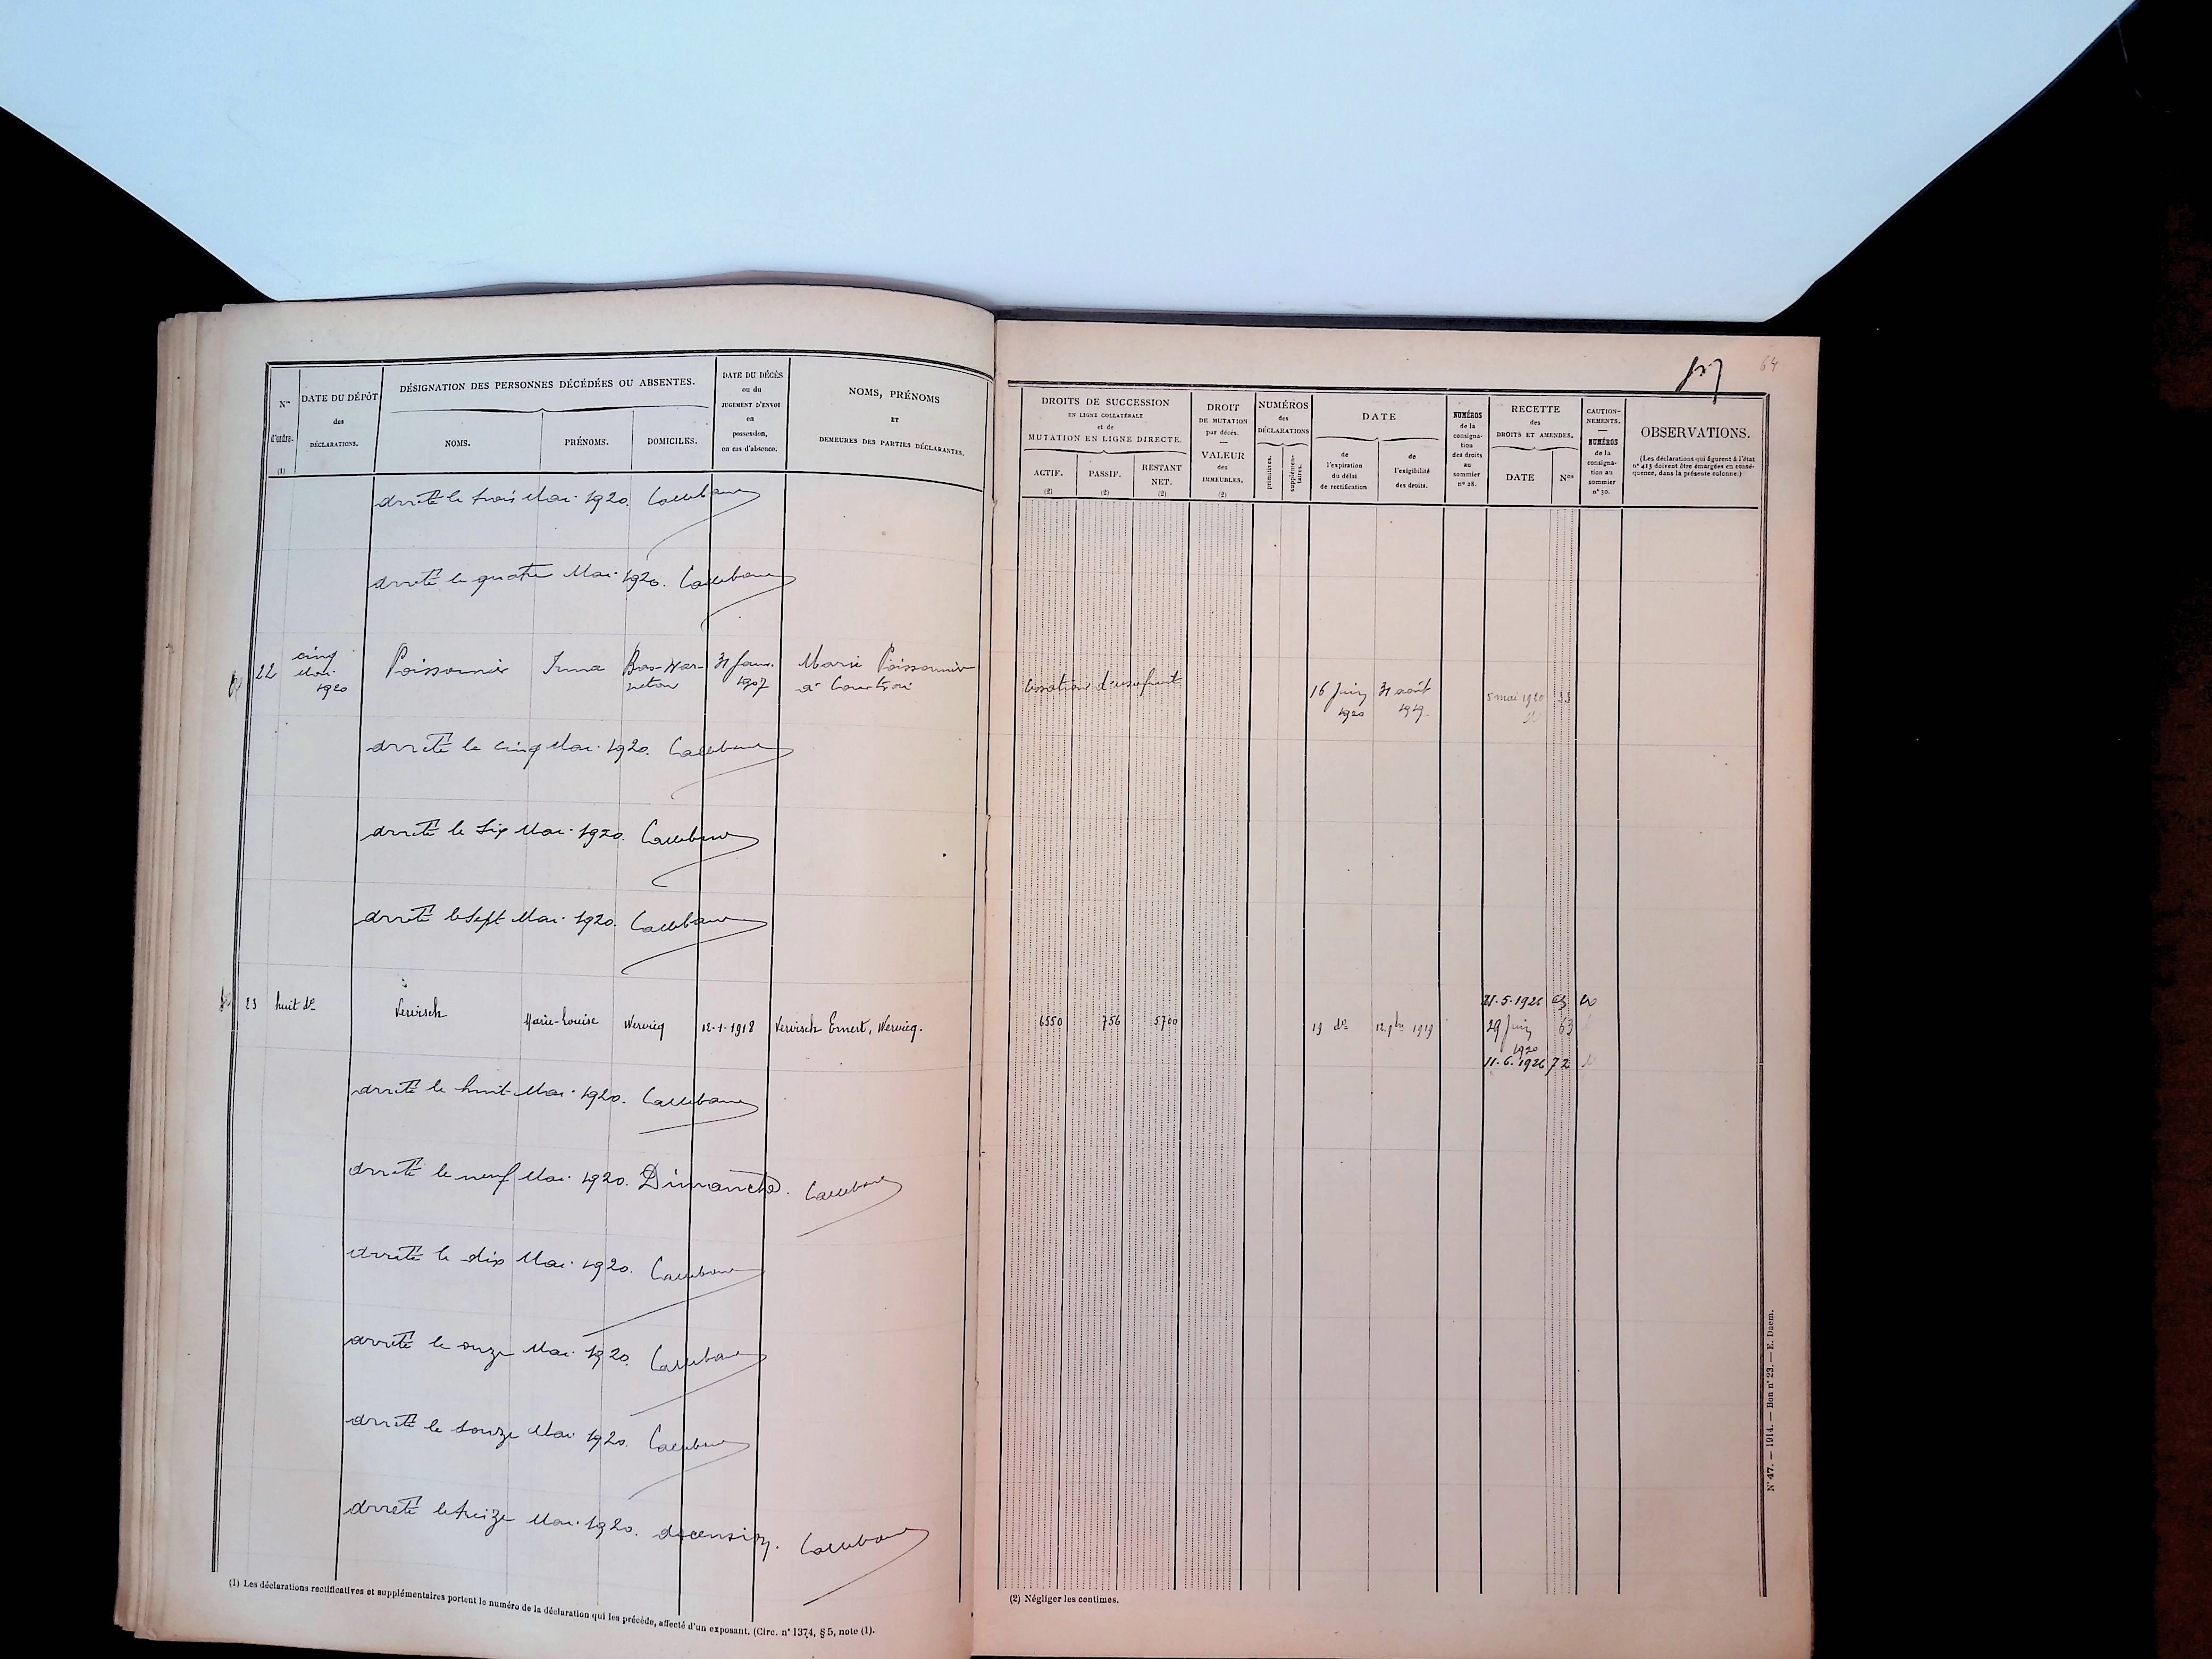 64
Nos
d'ordre.
(1)
DATE DU DÉPÔT
des
DÉCLARATIONS.
DÉSIGNATION DES PERSONNES DÉCÉDÉES OU ABSENTES.
NOMS.
PRÉNOMS.
DOMICILES.
DATE DU DÉCÈS
ou du
JUGEMENT D'ENVOI
en
possession,
en cas d'absence.
NOMS, PRÉNOMS
ET
DEMEURES DES PARTIES DÉCLARANTES.
arrêté le trois Mai 1920.
arrêté le quatre Mai 1920.
22
cinq
Mai
1920
Poissonnier
Irma
Bas-War-
neton
31 Janv.
1907
Marie Poissonnier
à Courtrai
arrêté le cinq Mai 1920.
arrêté le six Mai 1920.
arrêté le sept Mai 1920.
23
huit do
Vervisch
Marie-Louise
Wervicq
12-1-1918
Vervisch Ernest, Wervicq.
arrêté le huit Mai 1920.
arrêté le neuf Mai 1920. Dimanche.
arrêté le dix Mai 1920.
arrêté le onze Mai 1920.
arrêté le douze Mai 1920.
arrêté le treize Mai 1920. Ascension.
(1) Les déclarations rectificatives et supplémentaires portent le numéro de la déclaration qui les précède, affecté d'un exposant. (Circ. n° 1374, § 5, note (1).
DROITS DE SUCCESSION
EN LIGNE COLLATÉRALE
et de
MUTATION EN LIGNE DIRECTE.
ACTIF.
(2)
PASSIF.
(2)
RESTANT
NET.
(2)
DROIT
DE MUTATION
par décès.
VALEUR
des
IMMEUBLES.
(2)
NUMÉROS
des
DÉCLARATIONS
primitives.
supplémen-
taires.
DATE
de
l'expiration
du délai
de rectification
de
l'exigibilité
des droits.
NUMÉROS
de la
consigna-
tion
des droits
au
sommier
n° 28.
RECETTE
des
DROITS ET AMENDES.
DATE
Nos
CAUTION-
NEMENTS.
NUMÉROS
de la
consigna-
tion au
sommier
n° 30.
OBSERVATIONS.
(Les déclarations qui figurent à l'état
n° 413 doivent être émargées en consé-
quence, dans la présente colonne.)
Cessation d'usufruit
16 Juin
1920
31 août
1919.
5 mai 1920
33
6550
756
5700
19 do
12 9bre 1919
21-5-1926
29 Juin
1920
63
11-6-1926
72
(2) Négliger les centimes.
N° 47. — 1914. — Bon n° 23. — E. Daem.